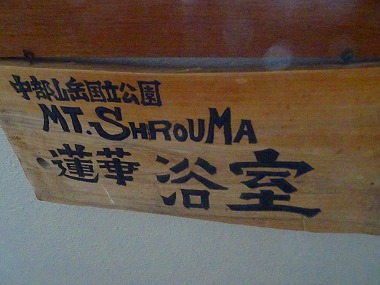 中部山岳国立公園
MT. SHROUMA
蓮華 浴室